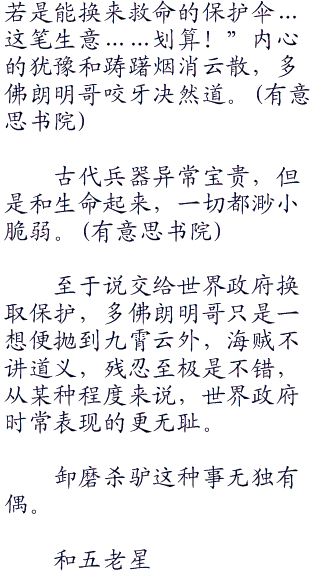 若是能换来救命的保护伞…
这笔生意……划算！”内心
的犹豫和踌躇烟消云散，多
佛朗明哥咬牙决然道。(有意
思书院)
古代兵器异常宝贵，但
是和生命起来，一切都渺小
脆弱。(有意思书院)
至于说交给世界政府换
取保护，多佛朗明哥只是一
想便抛到九霄云外，海贼不
讲道义，残忍至极是不错，
从某种程度来说，世界政府
时常表现的更无耻。
卸磨杀驴这种事无独有
偶。
和五老星